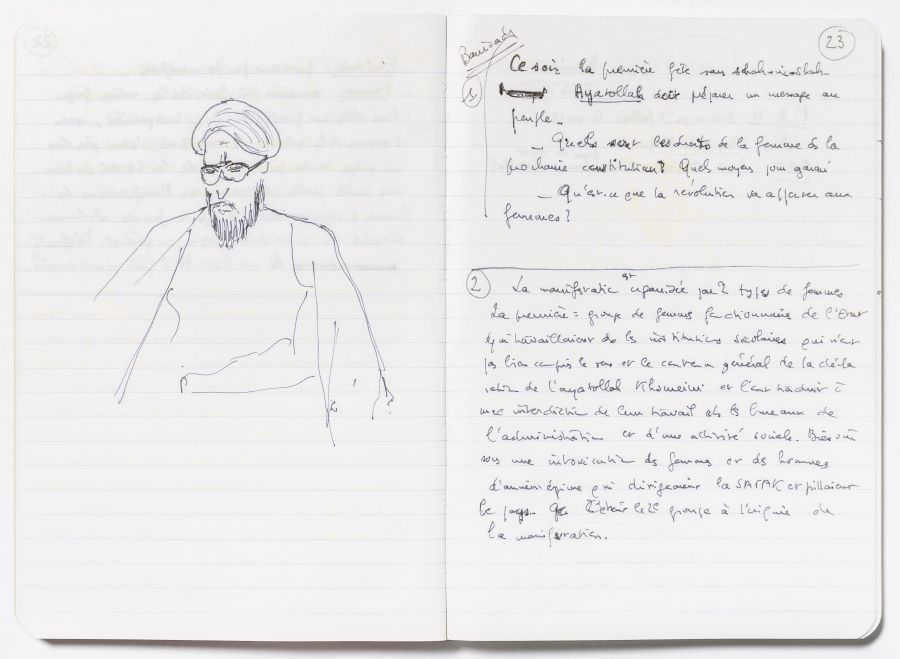 23
Banisadr
1
Ce soir la première fête sans
Ayatollah doit préparer un message au
peuple.
_ Quels sont les droits de la femme ds la
prochaine constitution? Quels moyens pour garantir
_ Qu'est-ce que la révolution va apporter aux
femmes?
2
La manifestation est organisée par 2 types de femmes
La première = groupe de femmes fonctionnaires de l'Etat
qui travaillaient ds ls institutions scolaires qui n'ont
pas bien compris le sens et le contenu général de la décla
ration de l'ayatollah Khomeini et l'ont traduit à
une interdiction de leur travail ds ls bureaux de
l'administration et d'une activité sociale. Bien sûr
sous une intoxication des femmes et des hommes
d'ancien régime qui dirigeaient la SAVAK et pillaient
le pays. C'était le 2e groupe à l'origine de
la manifestation.